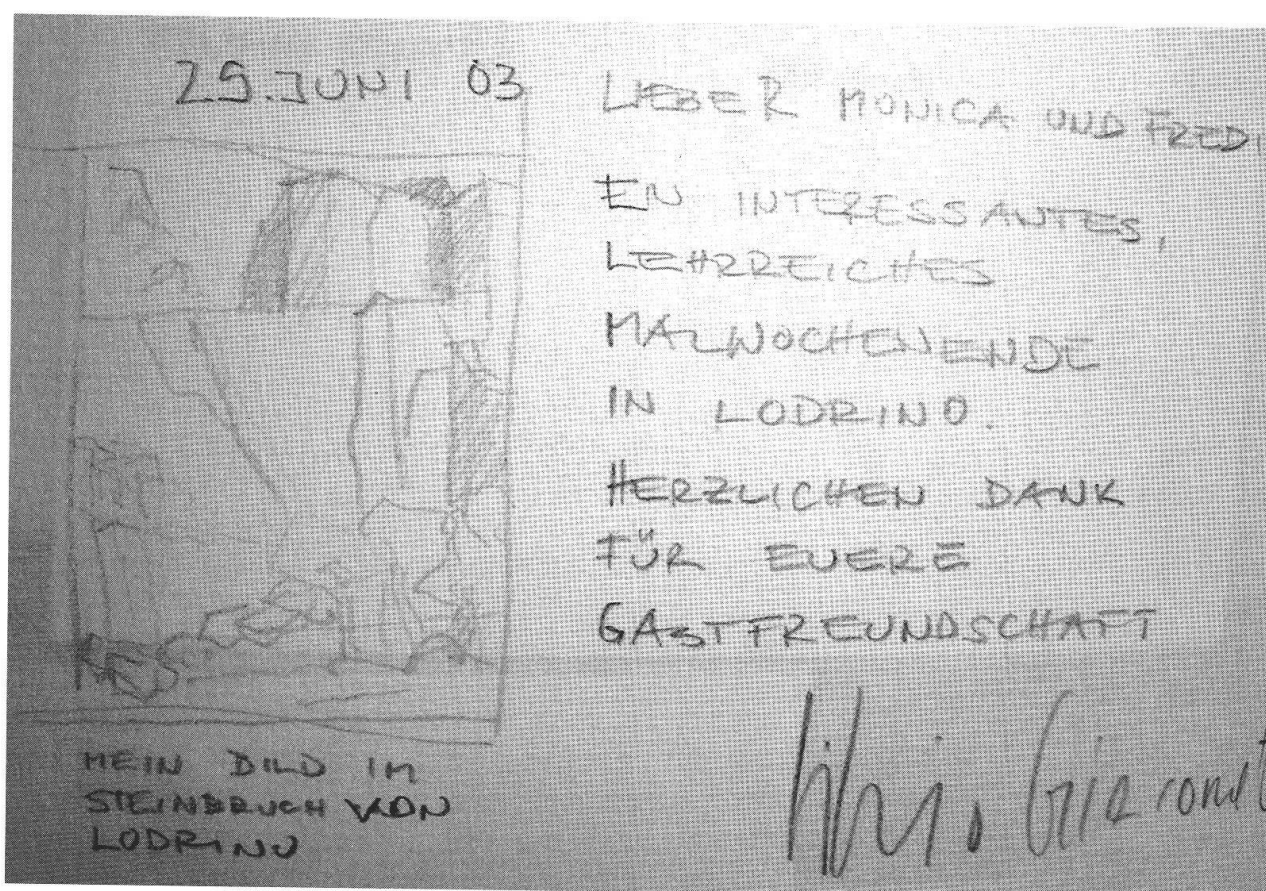 29.JUNI 03
LIEBER MONICA UND FREDI
EN INTERESSANTES,
LEHRREICHES
MALWOCHENENDE
IN LODRINO.
HERZLICHEN DANK
FÜR EUERE
GASTFREUNDSCHAFT
MEIN BILD IM
STEINBRUCH VON
LODRINO